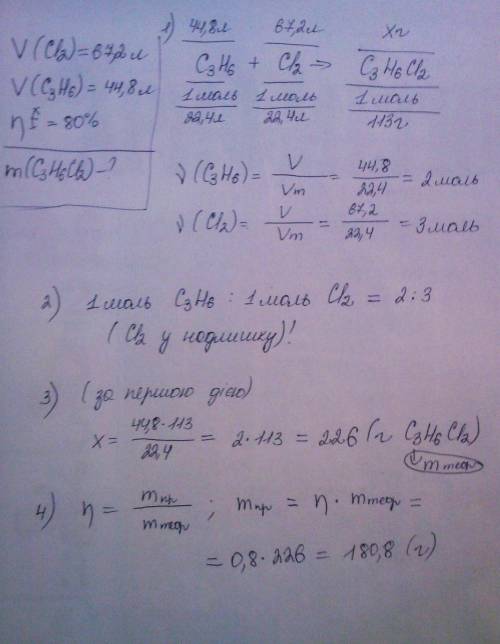 V(Cl₂)=67,2л
V(C₃H₆)=44,8л
η = 80%
m(C₃H₆Cl₂)-?
1) 44,8л 67,2л xг
C₃H₆ + Cl₂ → C₃H₆Cl₂
1моль 1моль 1моль
22,4л 22,4л 113г
ν(C₃H₆) = V/Vm = 44,8/22,4 = 2моль
ν(Cl₂) = V/Vm = 67,2/22,4 = 3моль
2) 1моль C₃H₆ : 1моль Cl₂ = 2:3
(Cl₂ у надлишку)!
3) (за першою дією)
x = 44,8·113/22,4 = 2·113 = 226 (г C₃H₆Cl₂)
mтеор
4) η = mпр/mтеор ; mпр = η · mтеор =
= 0,8·226 = 180,8 (г)